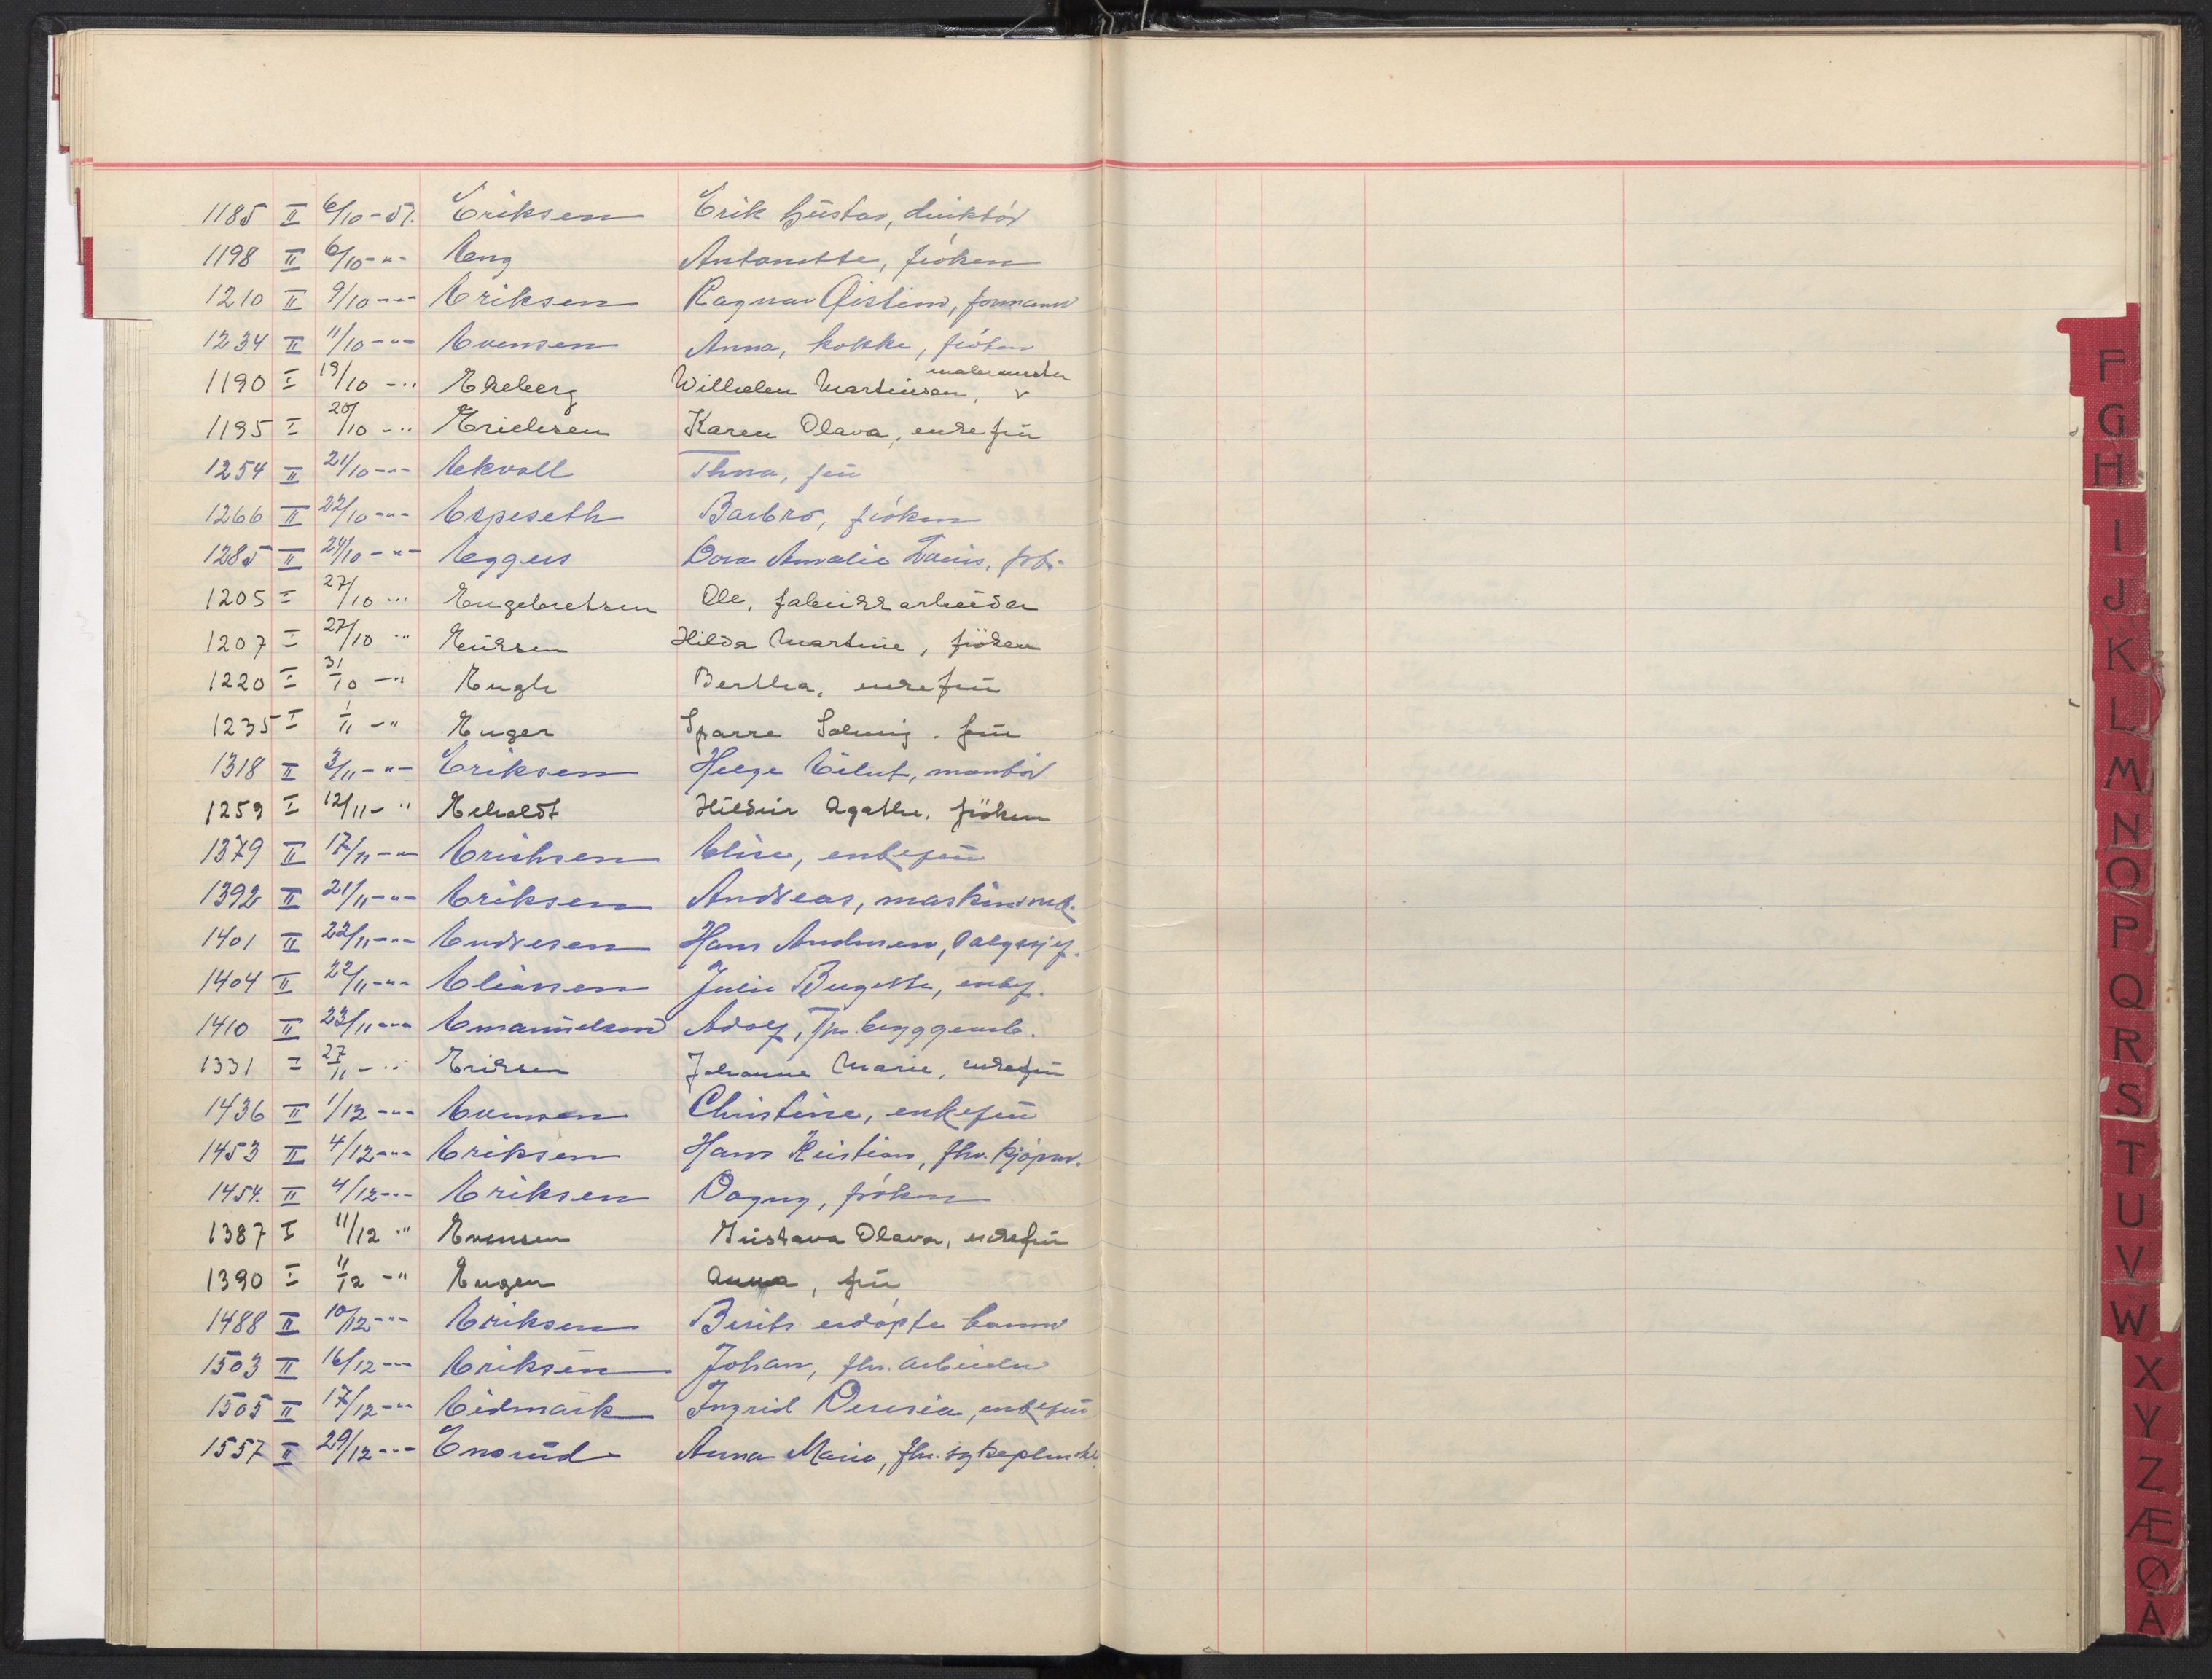 1185 II 6/10-51. Eriksen Erik Gustav, direktør
1198 II 6/10-"- Eng Antonette, frøken
1210 II 9/10-"- Eriksen Ragnar Øistein, formann
1234 II 11/10-"- Evensen Anna, kokke, frøken
malermester
1190 I 19/10 -" Ekeberg Wilhelm Martinsen, v
1195 I 20/10 -" Erichsen Karen Olava, enkefru
1254 II 21/10-"- Ekvall Thora, fru
1266 II 22/10-"- Espeseth Barbro, frøken
1285 II 24/10-"- Eggers Dora Amalie
1205 I 27/10 -" Engebretsen Ole, fabrikkarbeider
1207 I 27/10 -" Eriksen Hilda Martine, frøken
1220 I 31/10 -" Engh Bertha, enkefru
1235 I 1/11 -" Enger Sparre Solveig. fru
1318 II 3/11-"- Eriksen Helge Eilert, montør
1259 I 12/11- " Echoldt Hildur Agathe, frøken
1379 II 17/11-"- Erichsen Elise, enkefru
1392 II 21/11-"- Eriksen Andreas,
1401 II 22/11-"- Endresen Hans Andersen, salgssjef.
1404 II 22/11-"- Eliassen Julie Bergette, enkef.
1410 II 23/11-"- Emanuelsen Adolf, fhv. bryggearb.
1331 I 27/11 -" Eriksen Johanne Marie, enkefru
1436 II 1/12-"- Evensen Christine, enkefru
1453 II 4/12-"- Eriksen Hans Kristian, fhv. kjøpm.
1454. II 4/12-"- Eriksen Dagny, frøken
1387 I 11/12 " Evensen Gustava Olava, enkefru
1390 I 11/12 -" Enger Anna, fru
1488 II 10/12-"- Eriksen Berits udøpte barn
1503 II 16/12-"- Eriksen Johan, fhv. arbeider
1505 II 17/12-"- Eidmark Ingrid enkefru
1557 II 29/12-"- Ensrud Anna Marie, fhv.
F
G
H
I
J
K
L
M
N
O
P
Q
R
S
T
U
V
W
X
Y
Z
Æ
Ø
Å